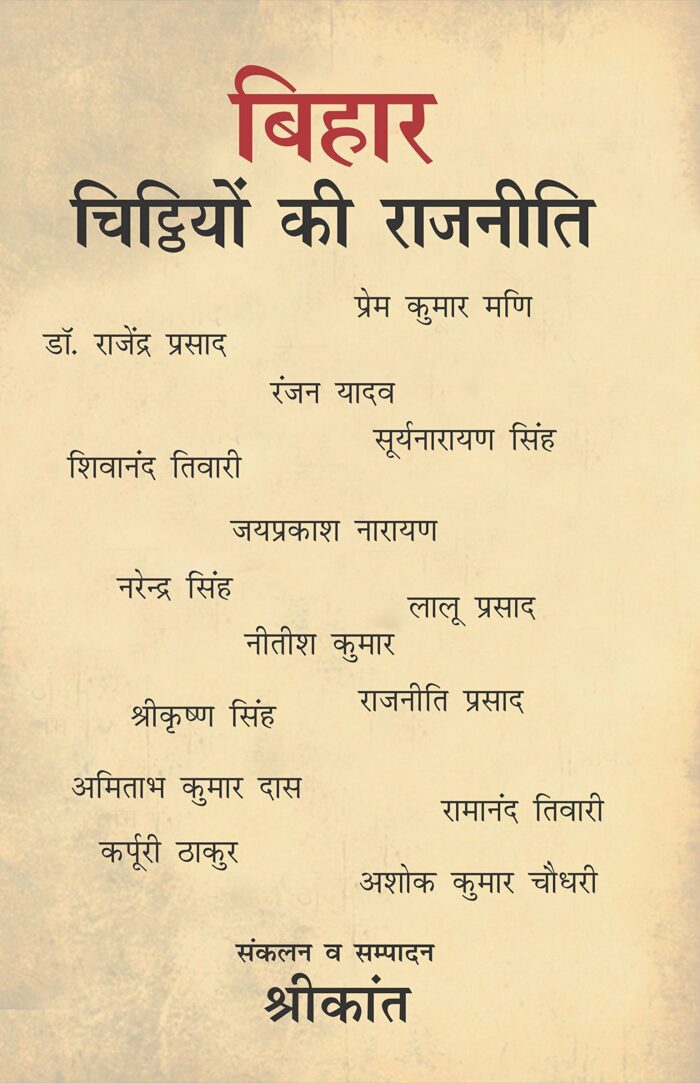 बिहार
चिट्ठियों की राजनीति
प्रेम कुमार मणि
डॉ. राजेंद्र प्रसाद
रंजन यादव
सूर्यनारायण सिंह
शिवानंद तिवारी
जयप्रकाश नारायण
नरेन्द्र सिंह
लालू प्रसाद
नीतीश कुमार
राजनीति प्रसाद
श्रीकृष्ण सिंह
अमिताभ कुमार दास
रामानंद तिवारी
कर्पूरी ठाकुर
अशोक कुमार चौधरी
संकलन व सम्पादन
श्रीकांत